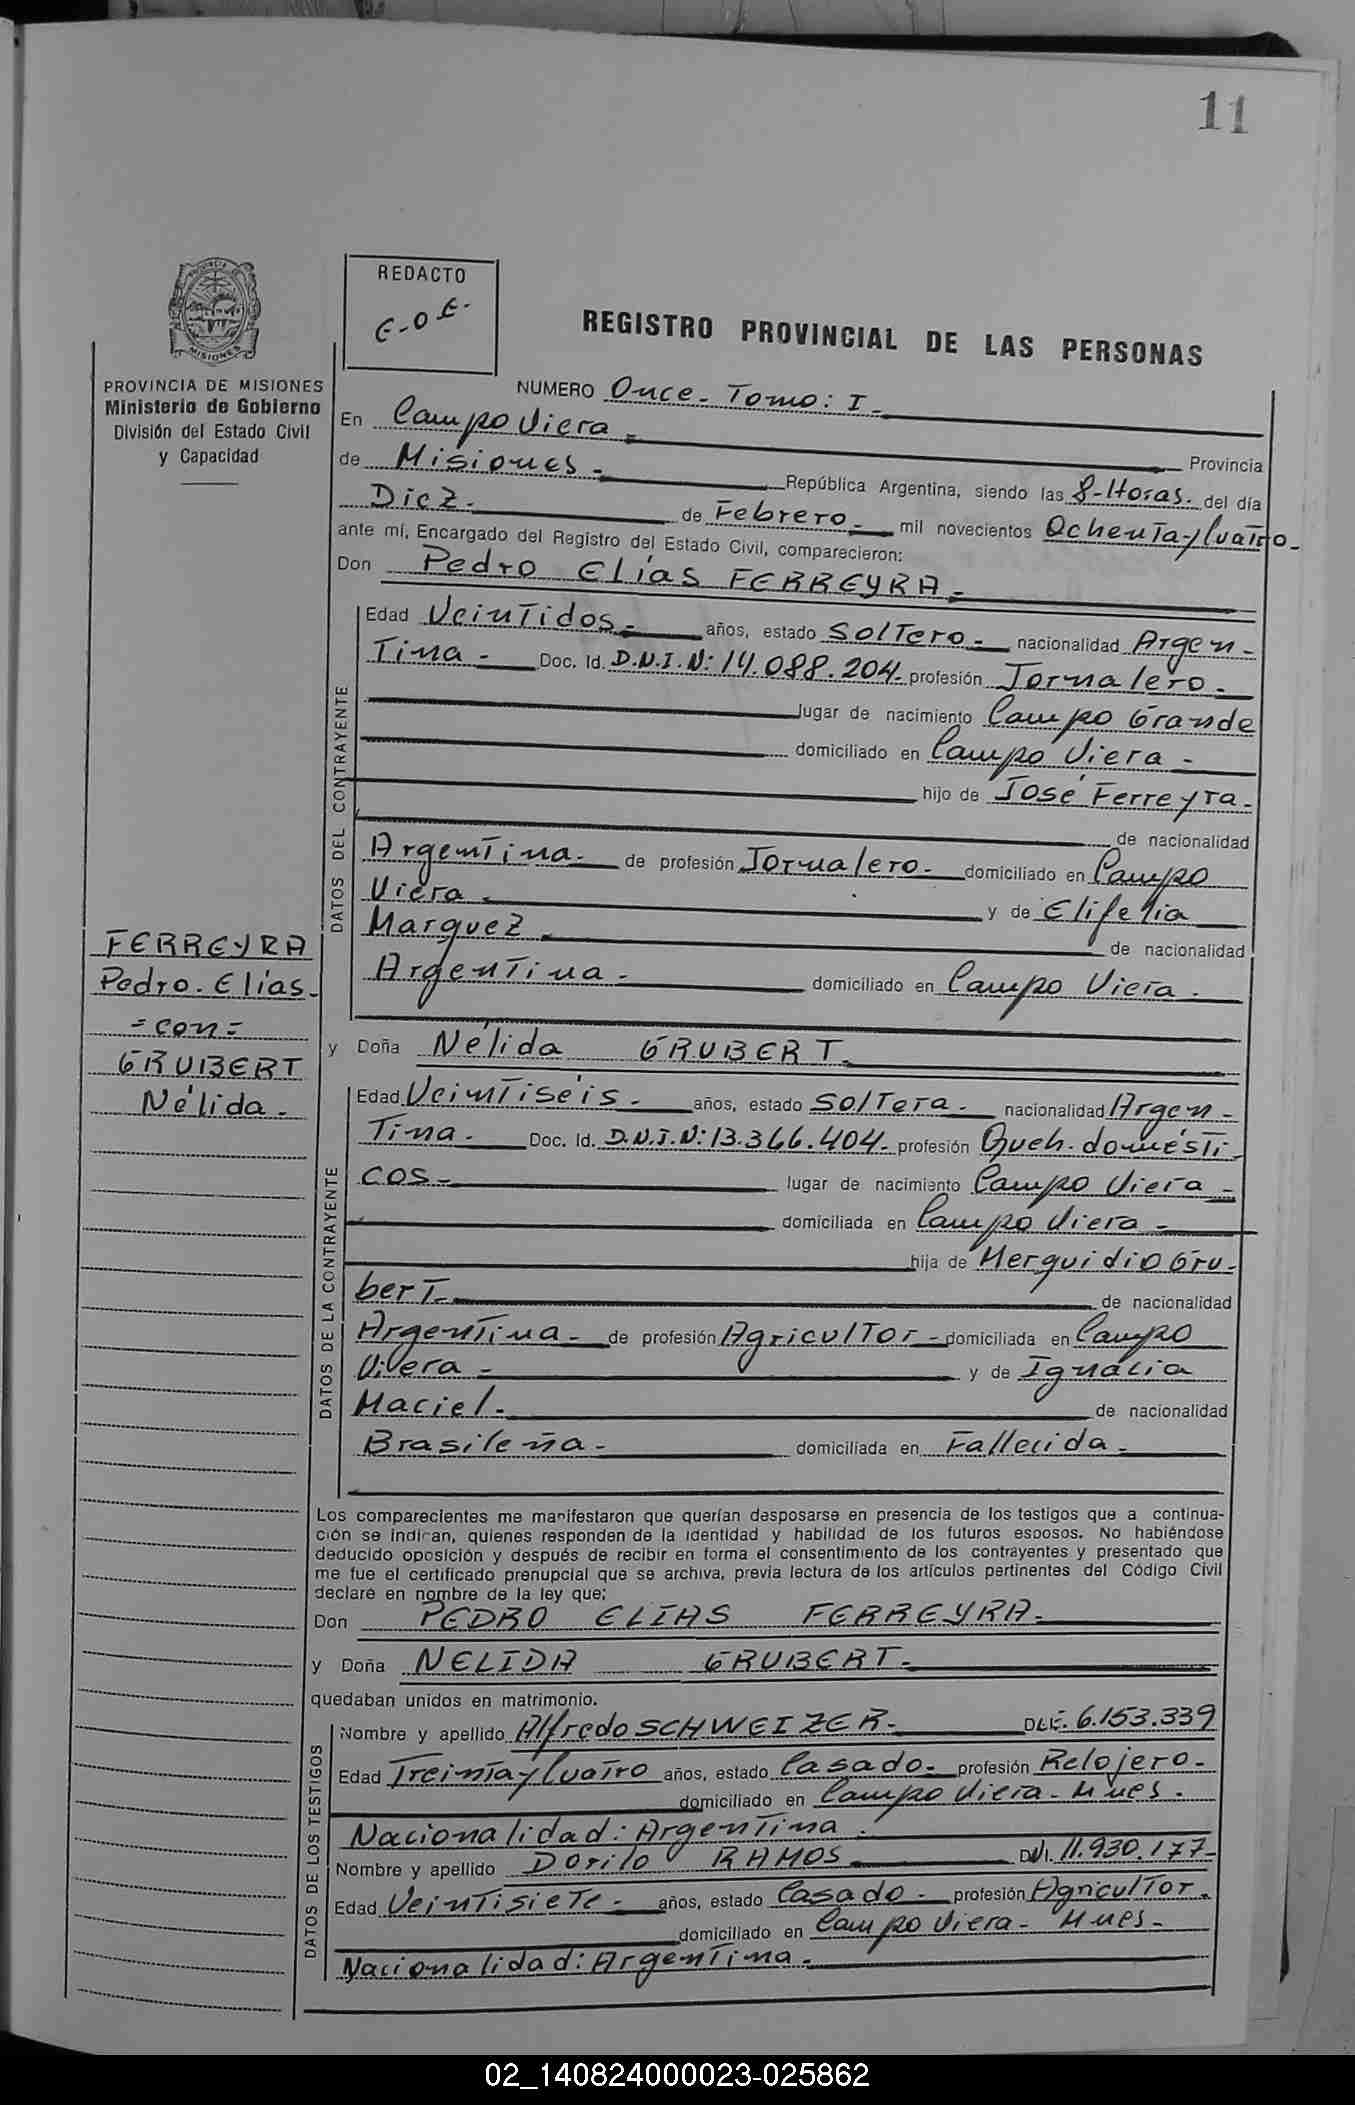 11
REDACTO
E-O E-
REGISTRO PROVINCIAL DE LAS PERSONAS
PROVINCIA DE MISIONES
Ministerio de Gobierno
División del Estado Civil
y Capacidad
NUMERO Once - Tomo: I -
En Campo Viera - Provincia
de Misiones - República Argentina, siendo las 8-Horas. del día
Diez - de Febrero - mil novecientos Ochenta y Cuatro -
ante mí, Encargado del Registro del Estado Civil, comparecieron:
Don Pedro Elías FERREYRA -
DATOS DEL CONTRAYENTE
Edad Veintidos - años, estado Soltero - nacionalidad Argen -
Tina - Doc. Id. D.N.I. N: 14.088.204 - profesión Jornalero -
lugar de nacimiento Campo Grande
domiciliado en Campo Viera -
hijo de José Ferreyra -
de nacionalidad
Argentina - de profesión Jornalero - domiciliado en Campo
Viera - y de Elifelia
Marquez - de nacionalidad
Argentina - domiciliado en Campo Viera -
FERREYRA
Pedro. Elías -
= con =
GRUBERT
Nélida -
y Doña Nélida GRUBERT -
DATOS DE LA CONTRAYENTE
Edad Veintiséis - años, estado Soltera - nacionalidad Argen -
Tina - Doc. Id. D.N.I. N: 13.366.404 - profesión Queh. domésti -
cos - lugar de nacimiento Campo Viera -
domiciliada en Campo Viera -
hija de Merguidio Gru -
bert - de nacionalidad
Argentina - de profesión Agricultor - domiciliada en Campo
Viera - y de Ignacia
Maciel - de nacionalidad
Brasileña - domiciliada en Fallecida -
Los comparecientes me manifestaron que querían desposarse en presencia de los testigos que a continua-
ción se indican, quienes responden de la identidad y habilidad de los futuros esposos. No habiéndose
deducido oposición y después de recibir en forma el consentimiento de los contrayentes y presentado que
me fue el certificado prenupcial que se archiva, previa lectura de los artículos pertinentes del Código Civil
declaré en nombre de la ley que:
Don PEDRO ELIAS FERREYRA -
y Doña NELIDA GRUBERT -
quedaban unidos en matrimonio.
DATOS DE LOS TESTIGOS
Nombre y apellido Alfredo SCHWEIZER - D.L.E. 6.153.339
Edad Treinta y Cuatro años, estado Casado - profesión Relojero -
domiciliado en Campo Viera - Mnes -
Nacionalidad: Argentina -
Nombre y apellido Dorilo RAMOS - DNI. 11.930.177 -
Edad Veintisiete - años, estado Casado - profesión Agricultor -
domiciliado en Campo Viera - Mnes -
Nacionalidad: Argentina -
02_140824000023-025862